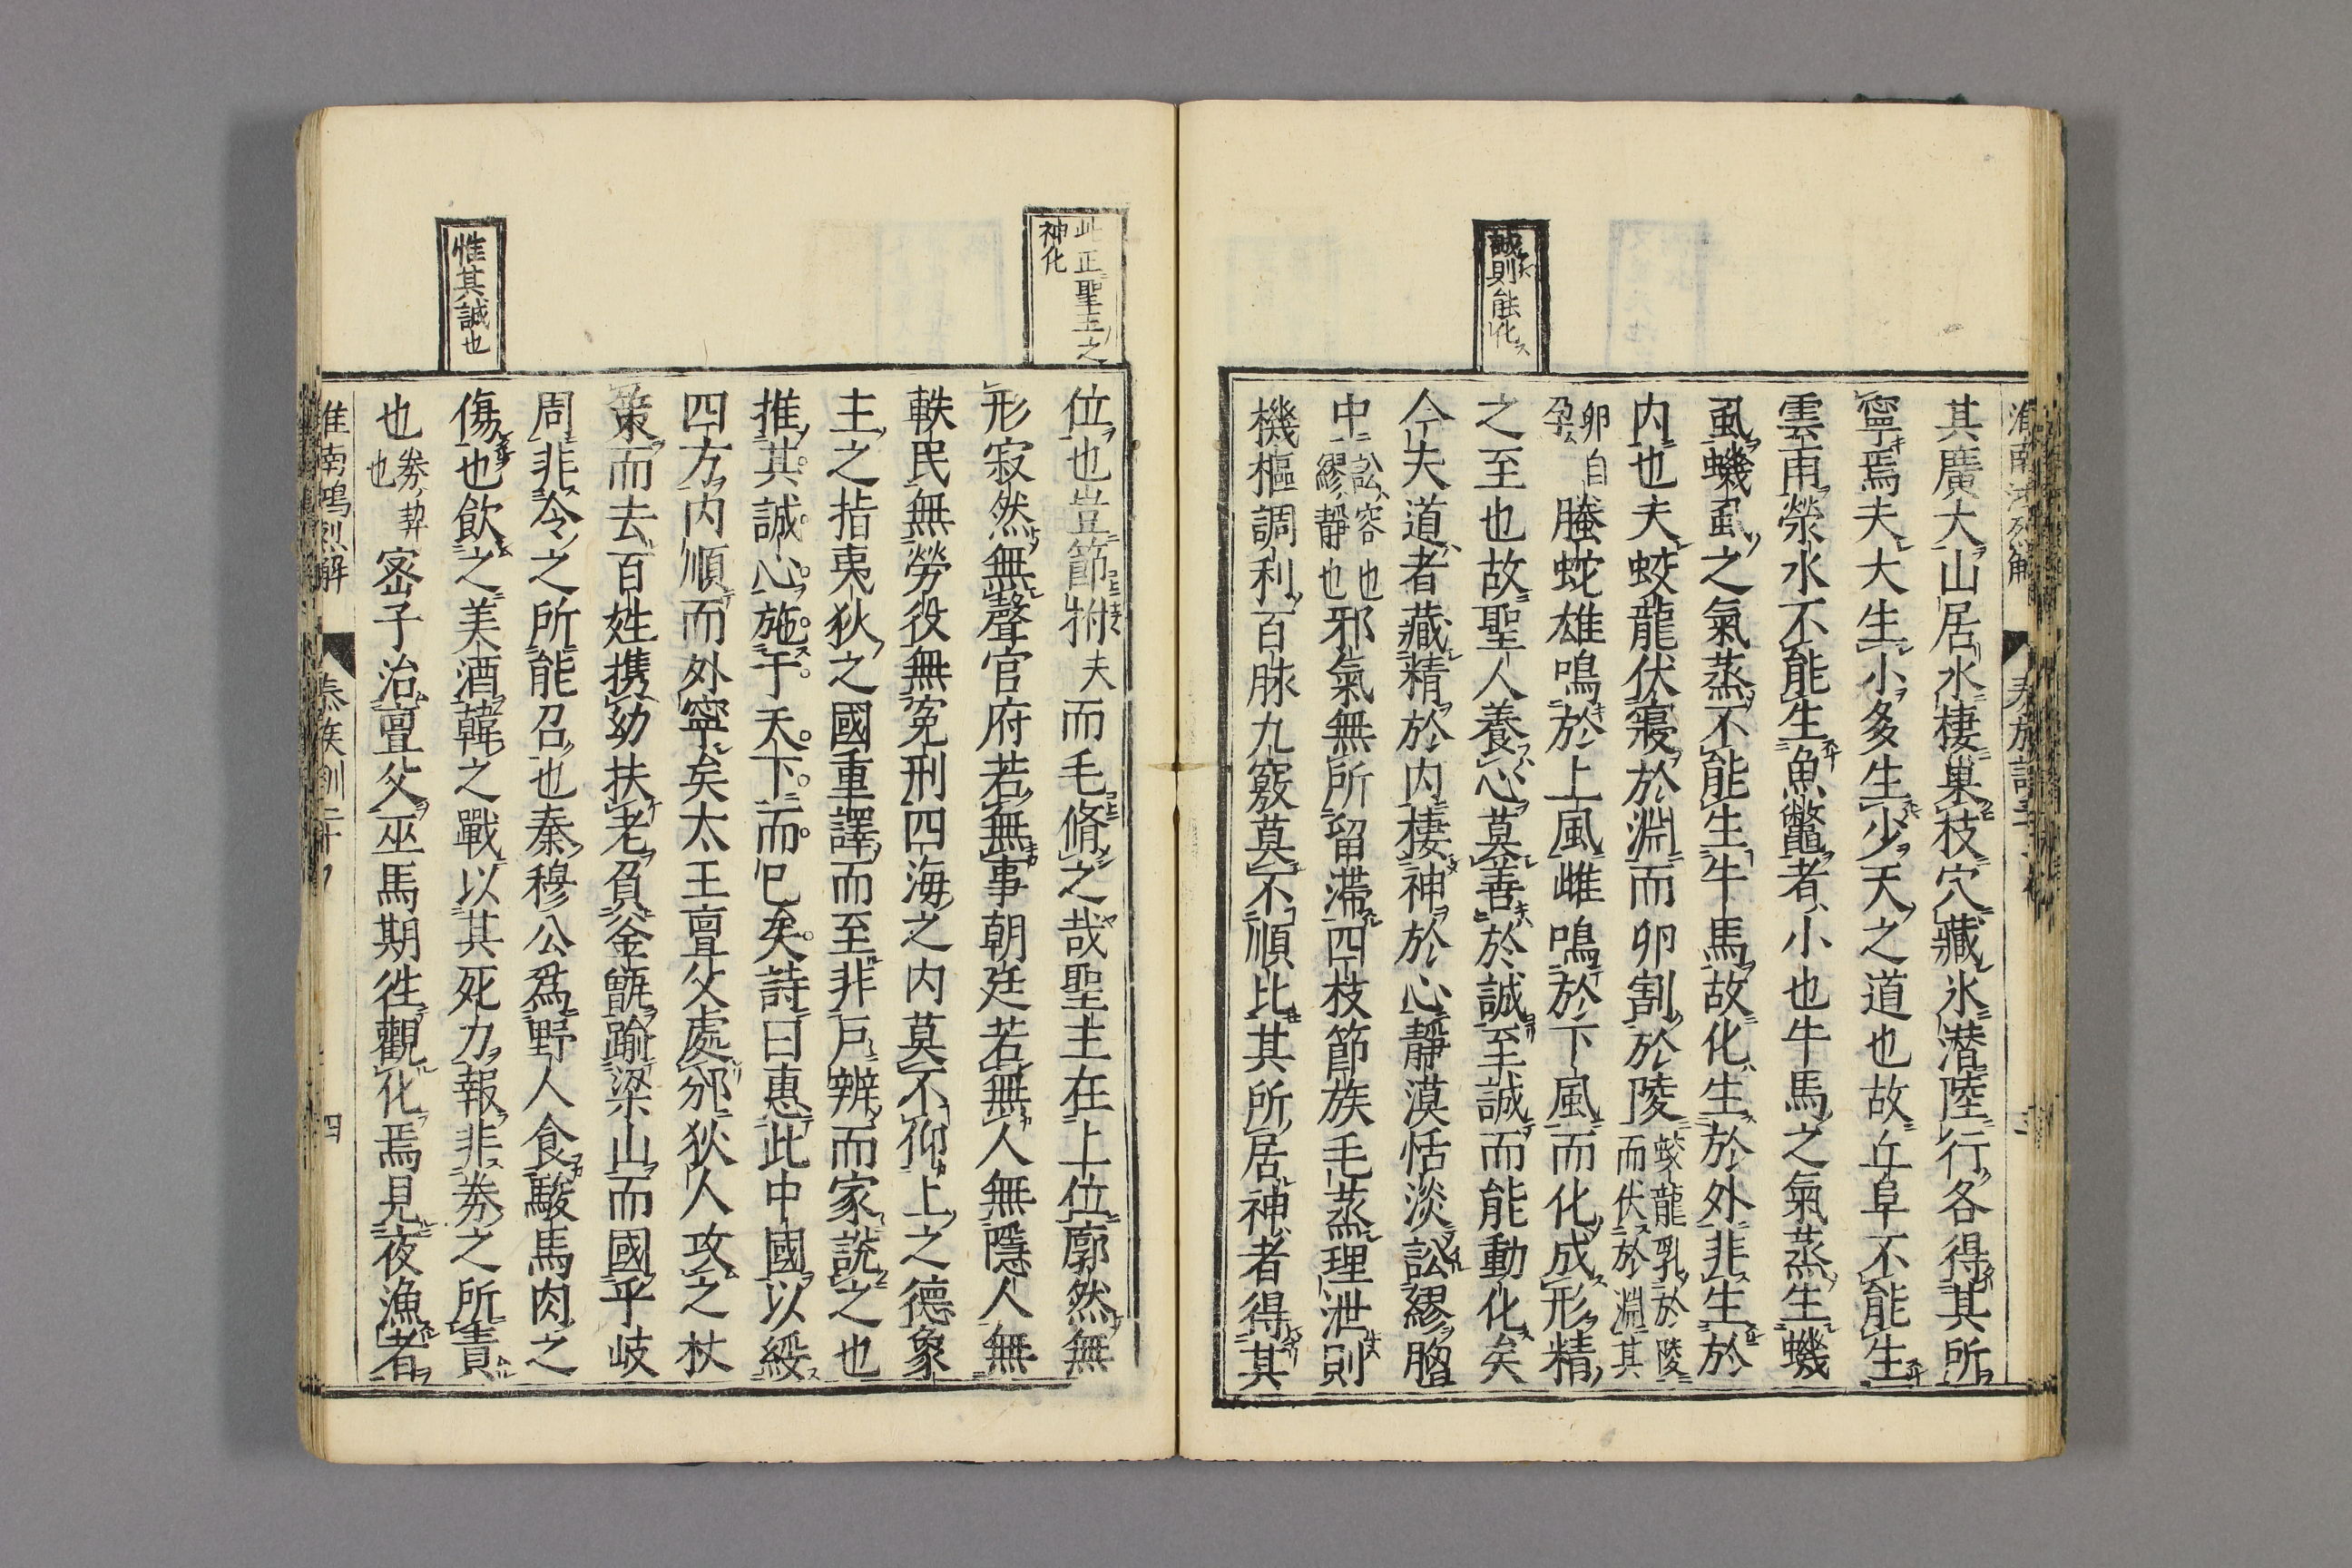 誠則能化
其廣大山居水棲巢枝穴藏氷潛陸行各得其所
寧焉夫大生小多生少天之道也故丘阜不能生
雲雨滎水不能生魚鼈者小也牛馬之氣蒸生蟣
虱蟣虱之氣蒸不能生牛馬故化生於外非生於
内也夫蛟龍伏寢於淵而卵割於陵蛟龍乳於陵而伏於淵其
卵自孕螣蛇雄鳴於上風雌鳴於下風而化成形精
之至也故聖人養心莫善於誠至誠而能動化矣
今夫道者藏精於内棲神於心靜漠恬淡訟繆胸
中訟容也繆靜也邪氣無所留滯四枝節族毛蒸理泄則
機樞調利百脉九竅莫不順比其所居神者得其
此正聖王之
神化
惟其誠也
位也豈節拊夫而毛脩之哉聖主在上位廓然無
形寂然無聲官府若無事朝廷若無人無隱人無
軼民無勞役無寃刑四海之内莫不仰上之德象
主之指夷狄之國重譯而至非戸辨而家說之也
推其誠心施于天下而已矣詩曰惠此中國以綏
四方内順而外寧矣太王亶父處邠狄人攻之杖
策而去百姓携幼扶老負釜甑踰梁山而國乎岐
周非令之所能召也秦穆公爲野人食駿馬肉之
傷也飲之美酒韓之戰以其死力報非券之所責
也券契也宻子治亶父巫馬期徃觀化焉見夜漁者
淮南鴻烈解 泰族訓二十 四